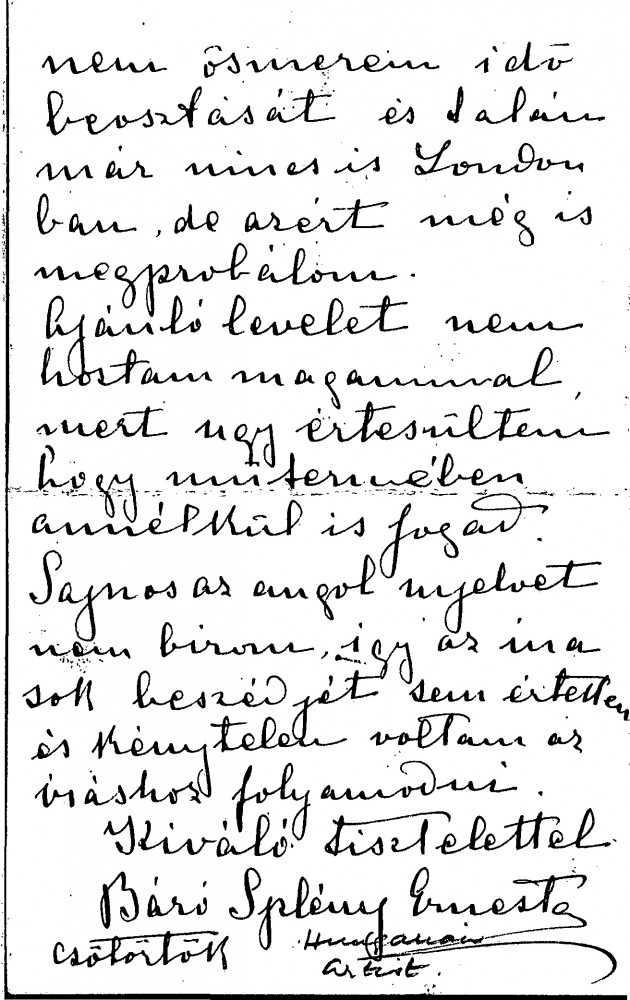 nem ösmerem idő
beosztását és talán
már nincs is London
ban, de azért még is
megprobálom.
Ajánló levelet nem
hoztam magammal,
mert ugy értesültem
hogy mütermében
annélkül is fogad.
Sajnos az angol nyelvet
nem birom, igy az ina
sok beszédjét sem értettem
és kénytelen voltam az
iráshoz folyamodni.
Kiváló tisztelettel
Báró Splény Ernesta
Csötörtök Hungarian
artist.